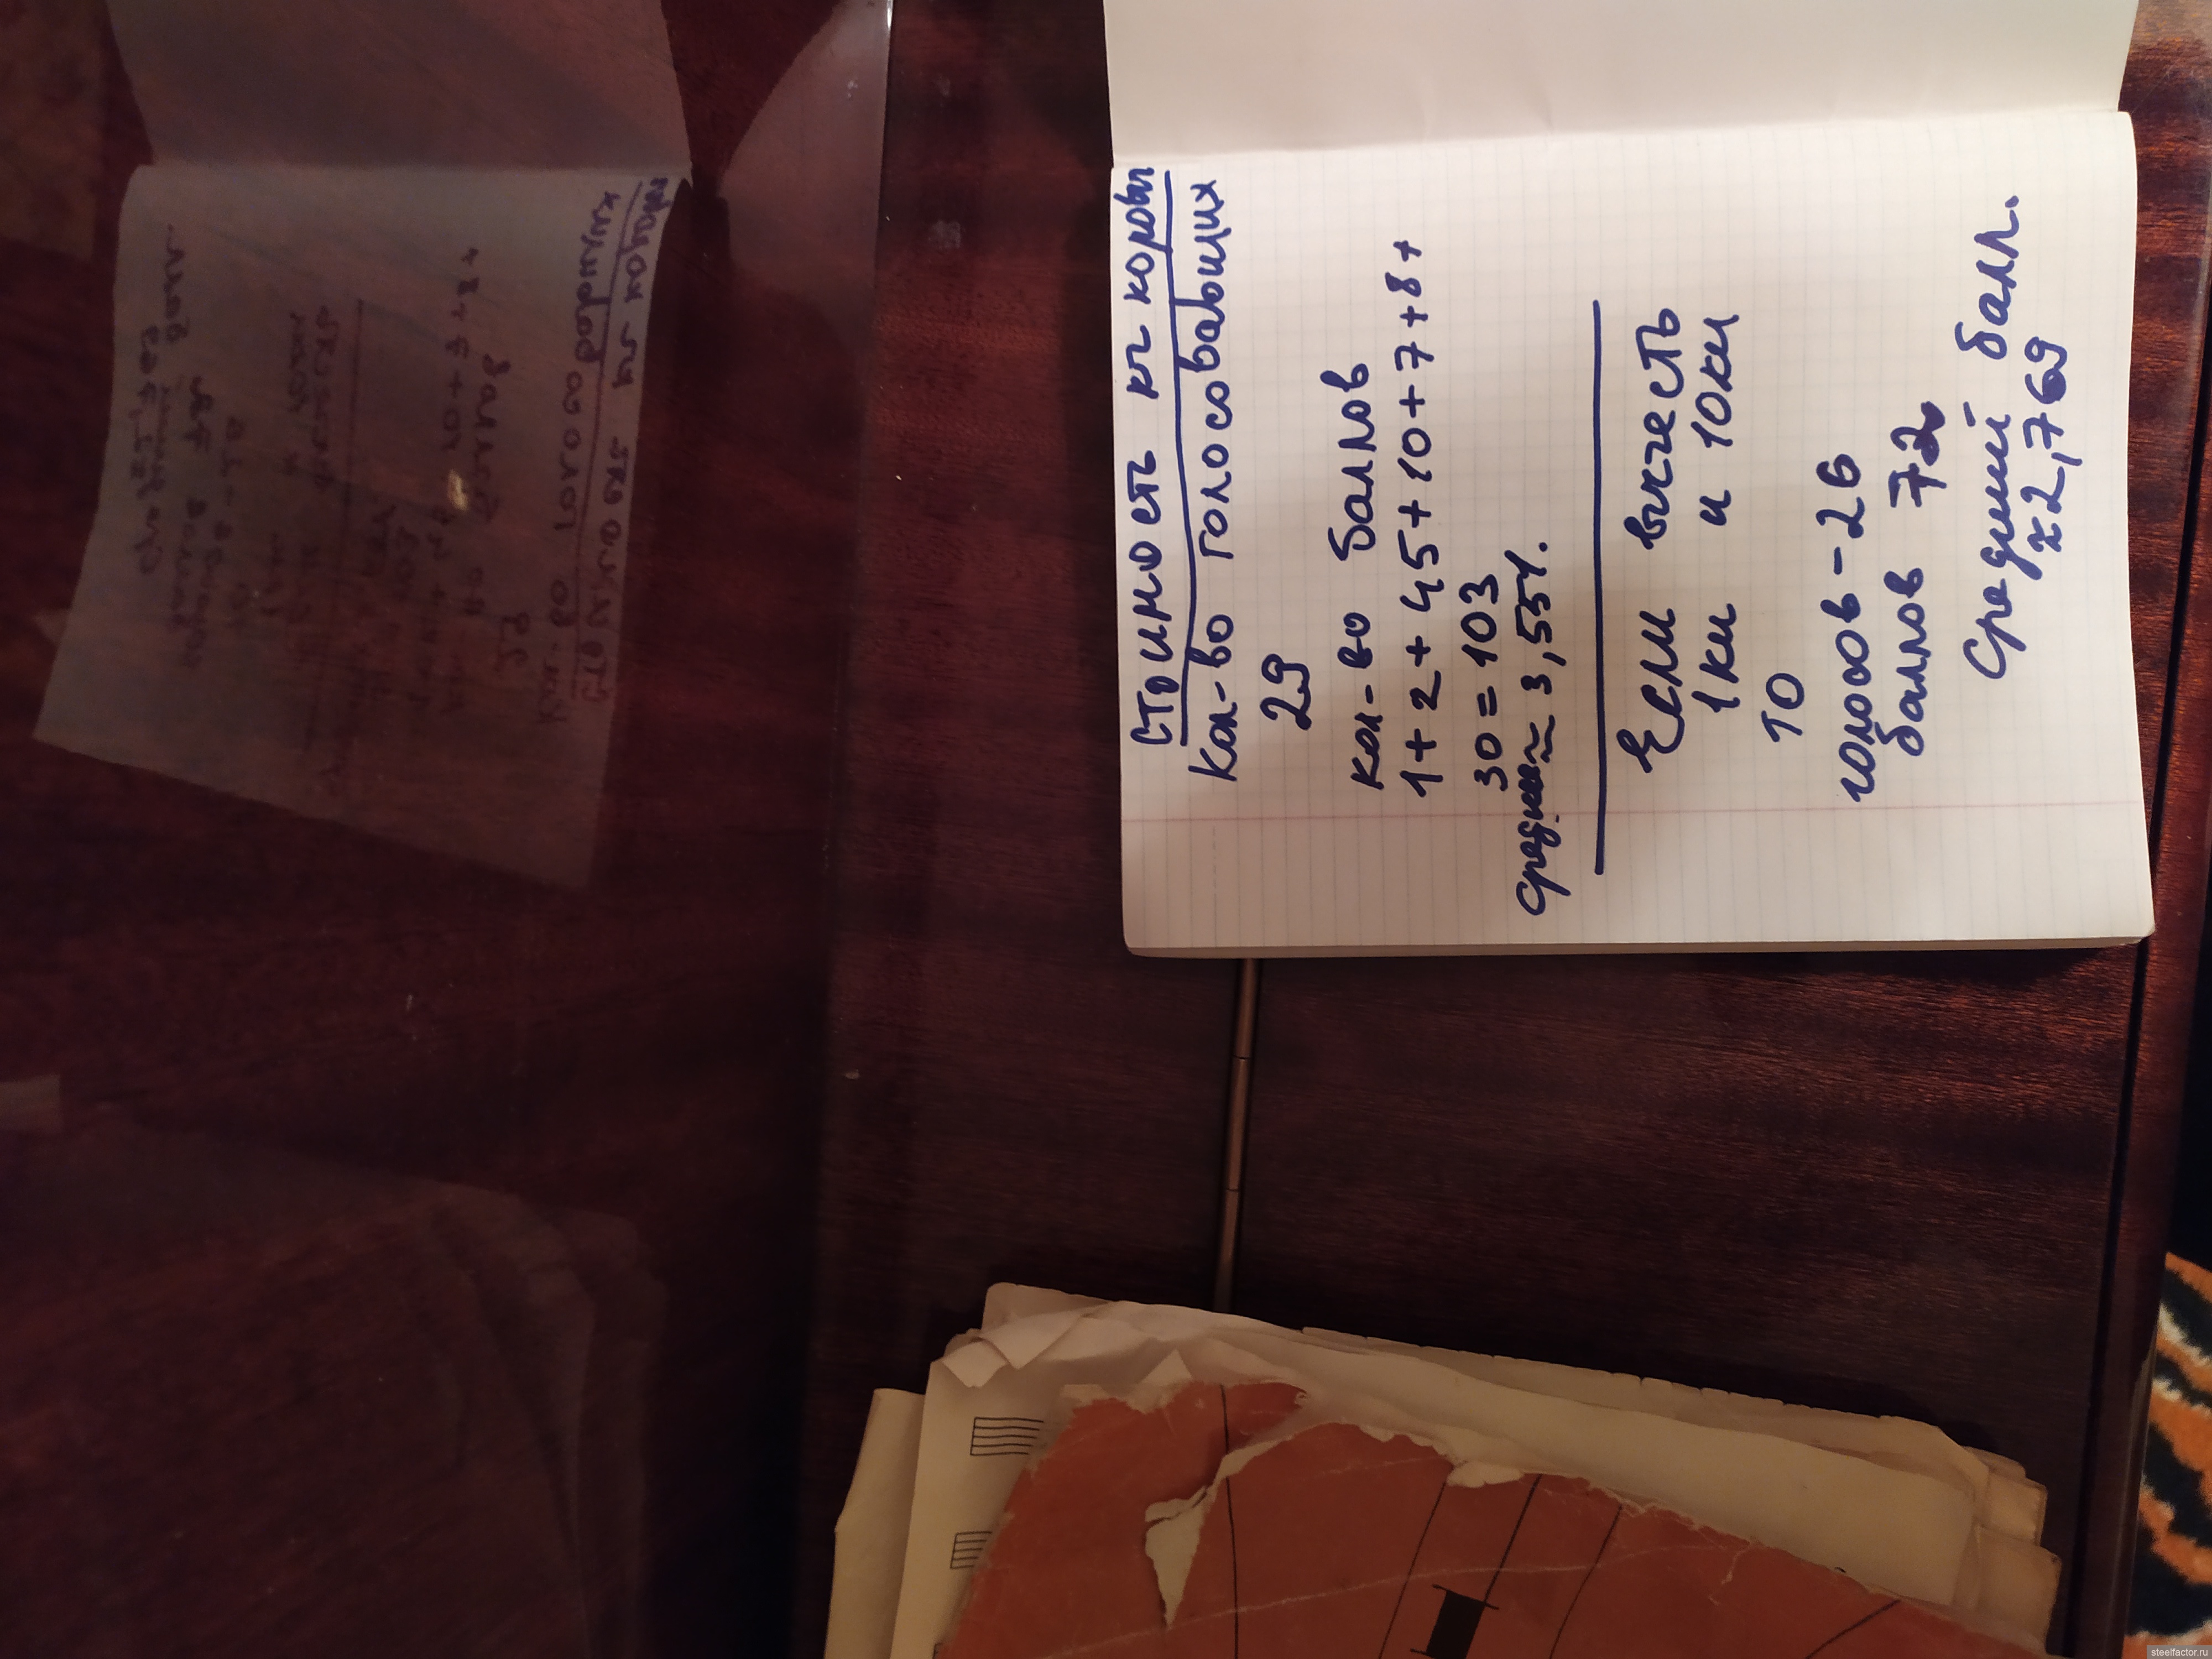 стоимость кг коровы
Кол-во голосовавших
29
кол-во баллов
1+2+45+10+7+8+
30=103
средн ≈ 3,551.
Если вычесть
1ки и 10ки
то
голосов-26
баллов 72
Средний балл.
≈2,769
steelfactor.ru